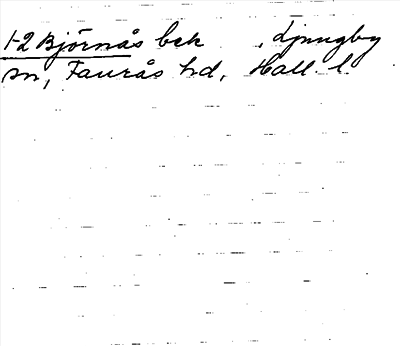 1-2 Björnås bek , Ljungby
sn, Faurås hd, Hall. l.